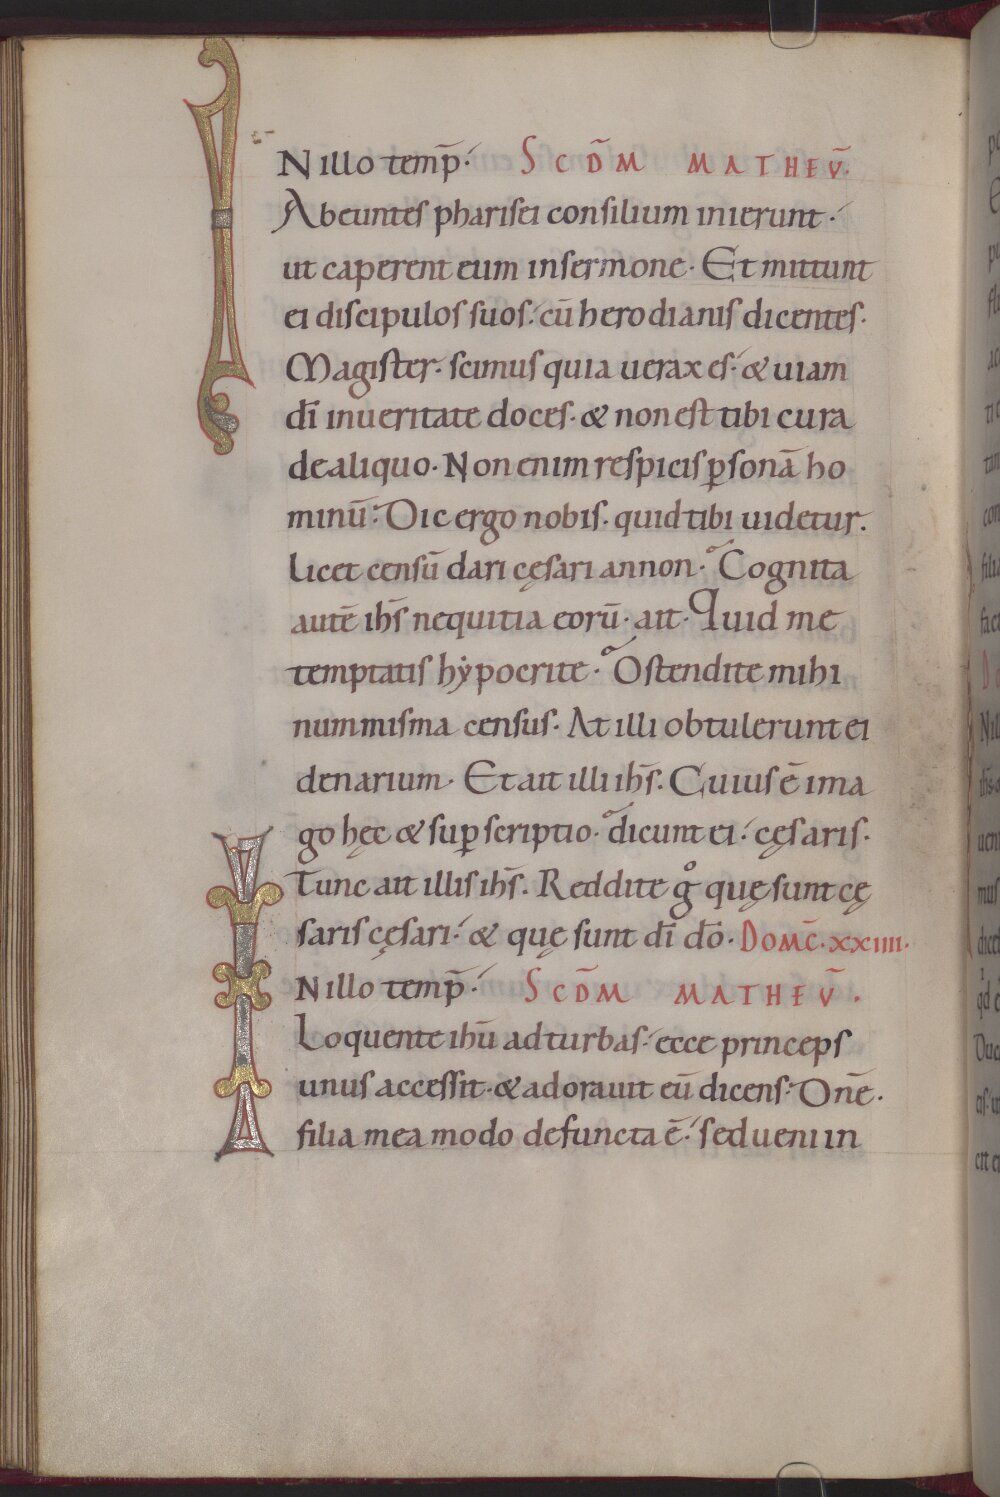 INillo temp̄. SCDM̄ MATHEV̄.
Abeuntes pharisei consilium inierunt.
ut caperent eum insermone. Et mittunt
ei discipulos suos. cū herodianis dicentes.
Magister. scimus quia uerax es. & uiam
dī inueritate doces. & non est tibi cura
dealiquo. Non enim respicis p̱sonā ho
minū. Dic ergo nobis. quid tibi uidetur.
Licet censū dari cęsari annon. Cognita
autē ih̄s nequitia eorū. ait. Quid me
temptatis hẏpocrite. Ostendite mihi
nummisma census. At illi obtulerunt ei
denarium. Et ait illi ih̄s. Cuius ē ima
go hęc & sup̱scriptio. dicunt ei. cęsaris.
Tunc ait illis ih̄s. Reddite gͦ quę sunt cę
saris cęsari. & quę sunt dī dō. DOMC̄. XXIIII.
INillo temp̄. SCDM̄ MATHEV̄.
Loquente ihū adturbas. ecce princeps
unus accessit. & adorauit eū dicens. Dn̄e.
filia mea modo defuncta ē. sed ueni in